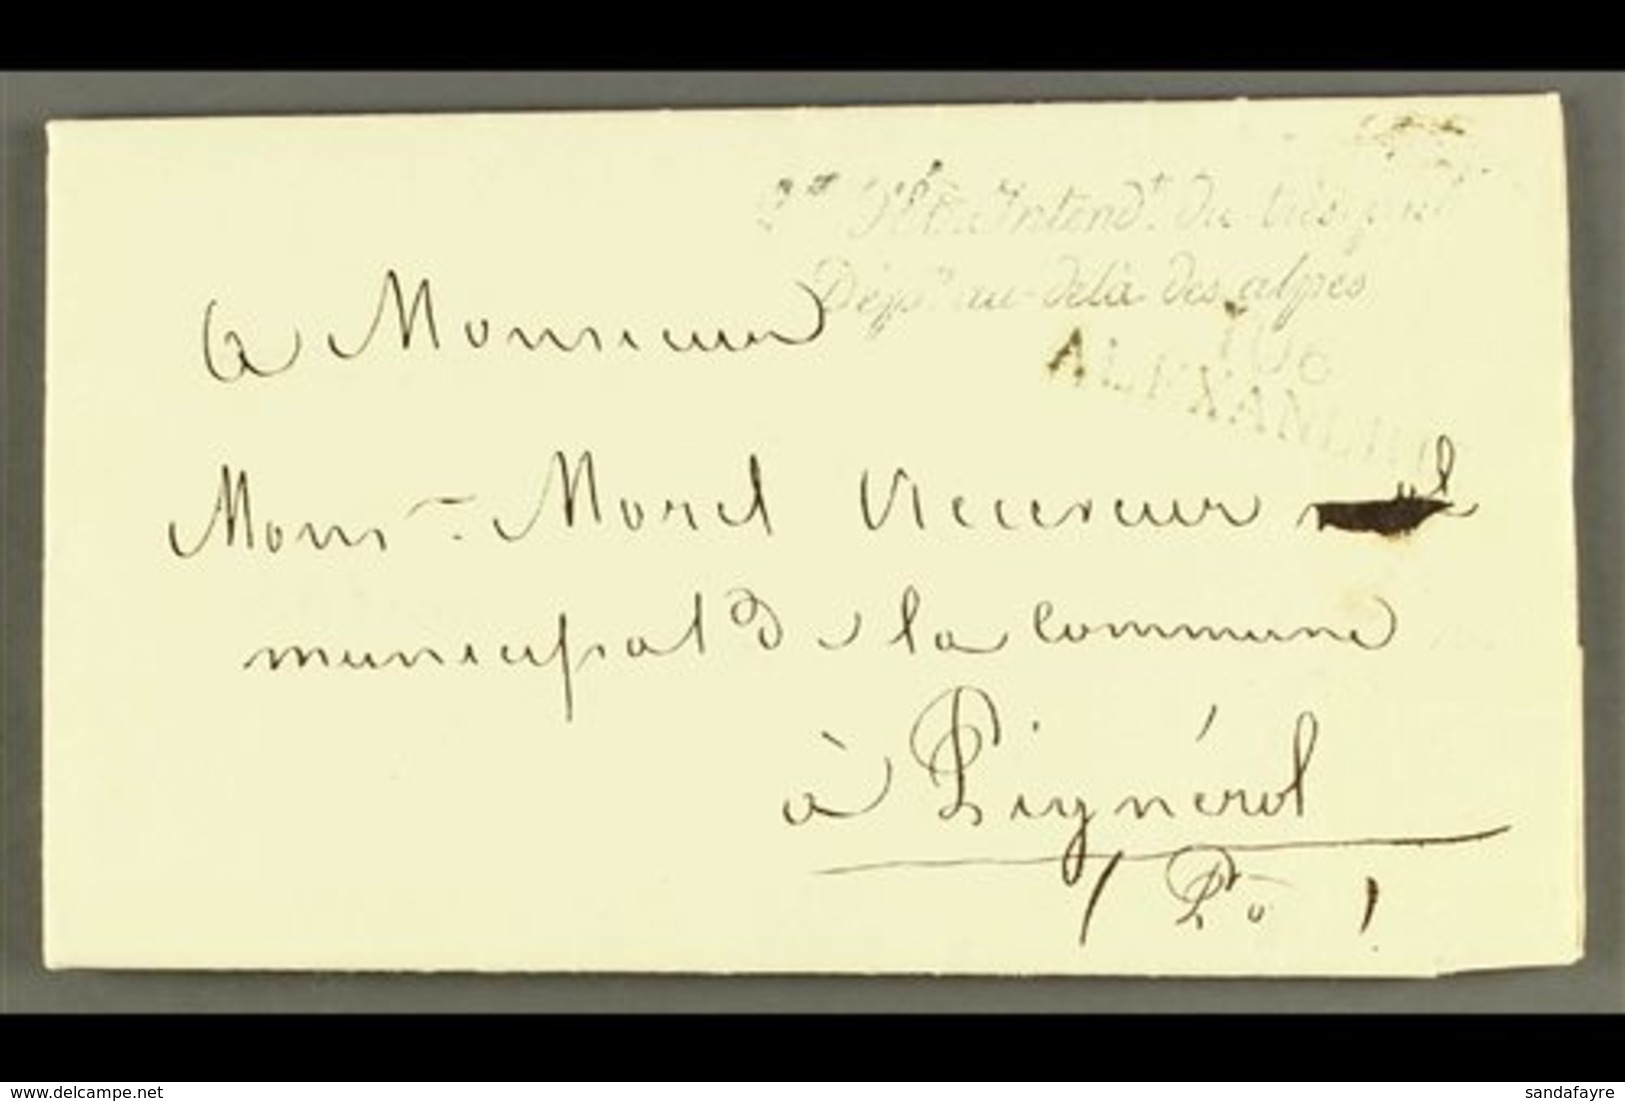 Intend.t du trés.
Dép.ts au-delà des alpes
106
ALEXANDRIE
a Monsieur
Mons.r Morel Receveur
municipal de la Commune
à Pignérol
Po
www.delcampe.net
sandafayre